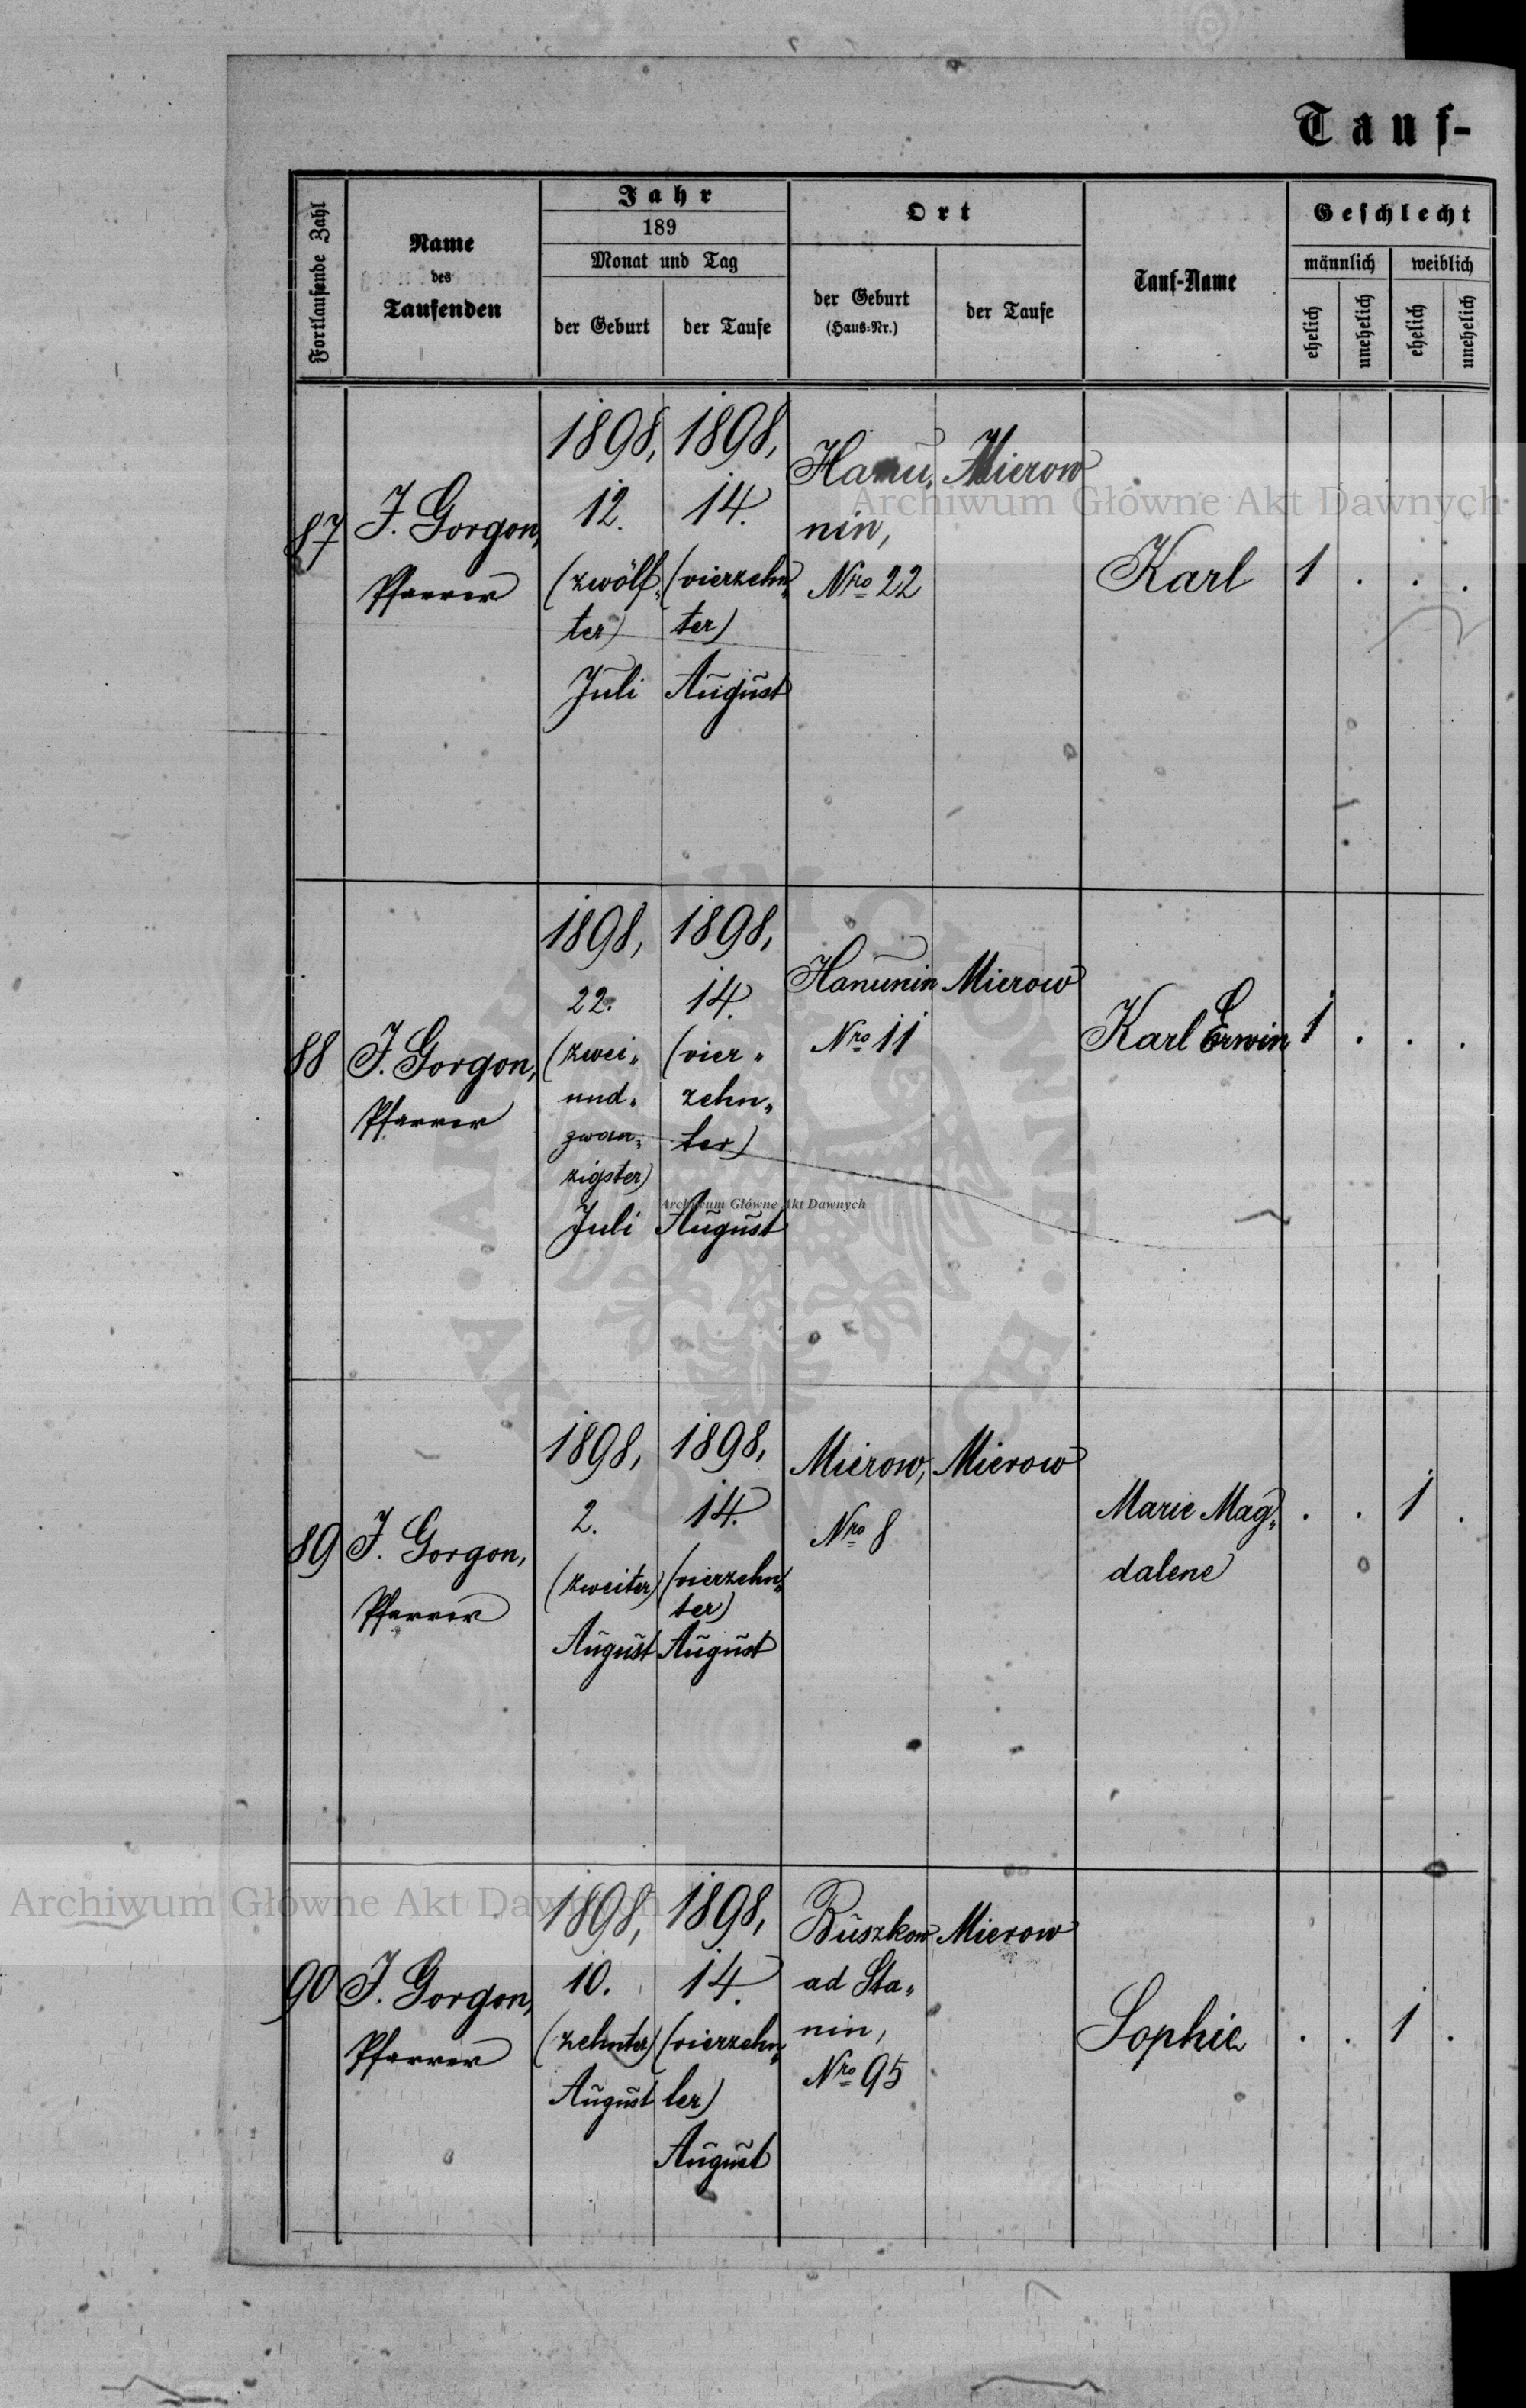 Tauf-
Fortlaufende Zahl
Name
des
Taufenden
Jahr
189
Monat und Tag
der Geburt
der Taufe
Ort
der Geburt
(Haus-Nr.)
der Taufe
Tauf-Name
Geschlecht
männlich
weiblich
ehelich
unehelich
ehelich
unehelich
87
J. Gorgon,
Pfarrer
1898,
12.
(zwölf„
ter)
Juli
1898,
14.
(vierzehn„
ter)
August
Hanu„
nin,
Nro 22
Mierow
Karl
1 . . .
88
J. Gorgon,
Pfarrer
1898,
22.
(zwei„
und„
zwan„
zigster)
Juli
1898,
14.
(vier„
zehn„
ter)
August
Hanunin
Nro 11
Mierow
Karl Erwin
1 . . .
89
J. Gorgon,
Pfarrer
1898,
2.
(zweiter)
August
1898,
14.
(vierzehn„
ter)
August
Mierow,
Nro 8
Mierow
Marie Mag„
dalene
. . 1 .
90
J. Gorgon,
Pfarrer
1898,
10.
(zehnter)
August
1898,
14.
(vierzehn„
ter)
August
Buszkow
ad Sta„
nin,
Nro 95
Mierow
Sophie
. . 1 .
Archiwum Główne Akt Dawnych
Archiwum Główne Akt Dawnych
Archiwum Główne Akt Dawnych
ARCHIWUM GŁÓWNE AKT DAWNYCH